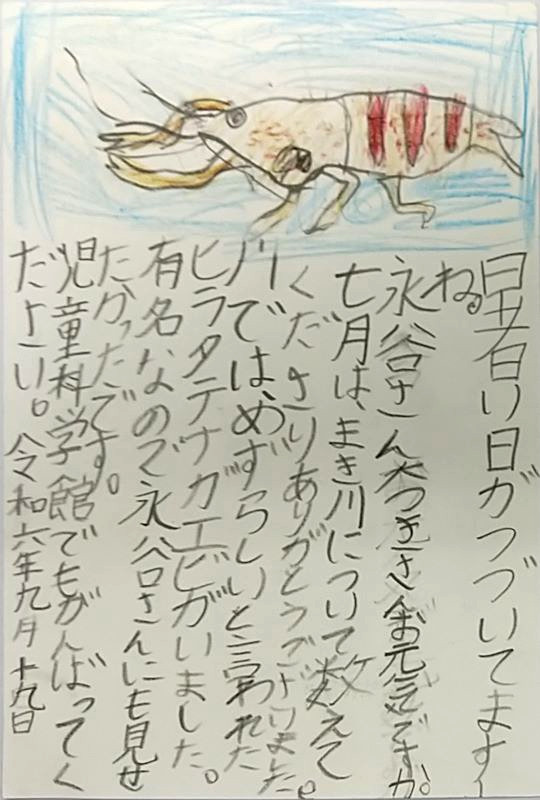 暑い日がつづいてます
ね。
永谷さん大つきさんお元気ですか。
七月は、まき川について教えて
くださりありがとうございました。
川では、めずらしいと言われた
ヒラタテナガエビがいました。
有名なので永谷さんにも見せ
たかったです。
児童科学館でもがんばってく
ださい。令和六年九月十九日